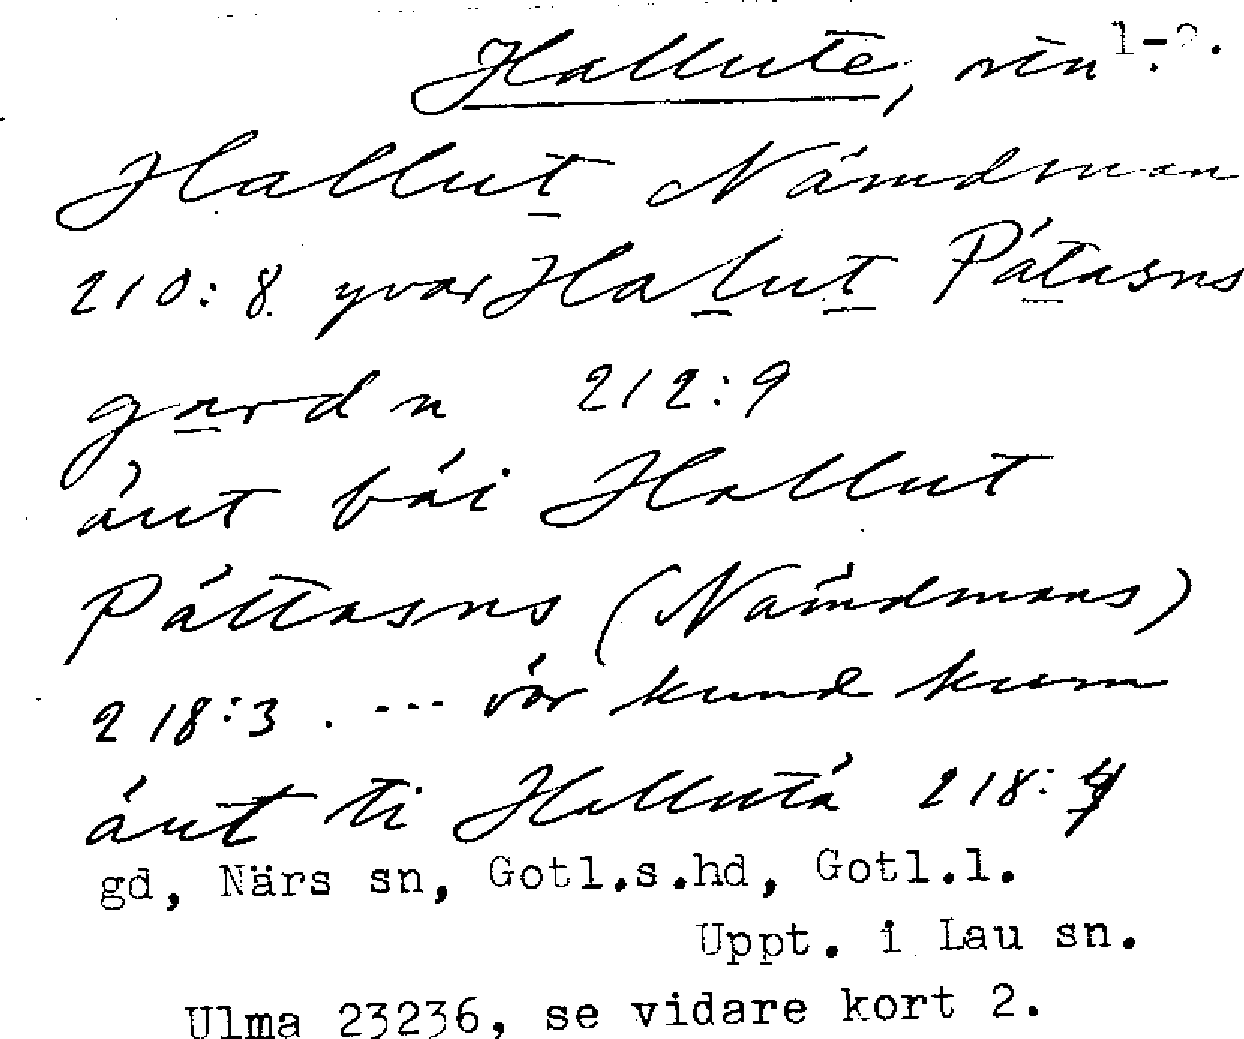 Hallute, sen 1-2.
Hallut Nämdman
210:8. yvar Halut Pátasns
gardn 212:9
áut bái Hallut
Páttasns (Nämdmans)
218:3 . --- vór kund kum
áut ti Hallutá 218:4
gd, Närs sn, Gotl.s.hd, Gotl.l.
Uppt. i Lau sn.
Ulma 23236, se vidare kort 2.